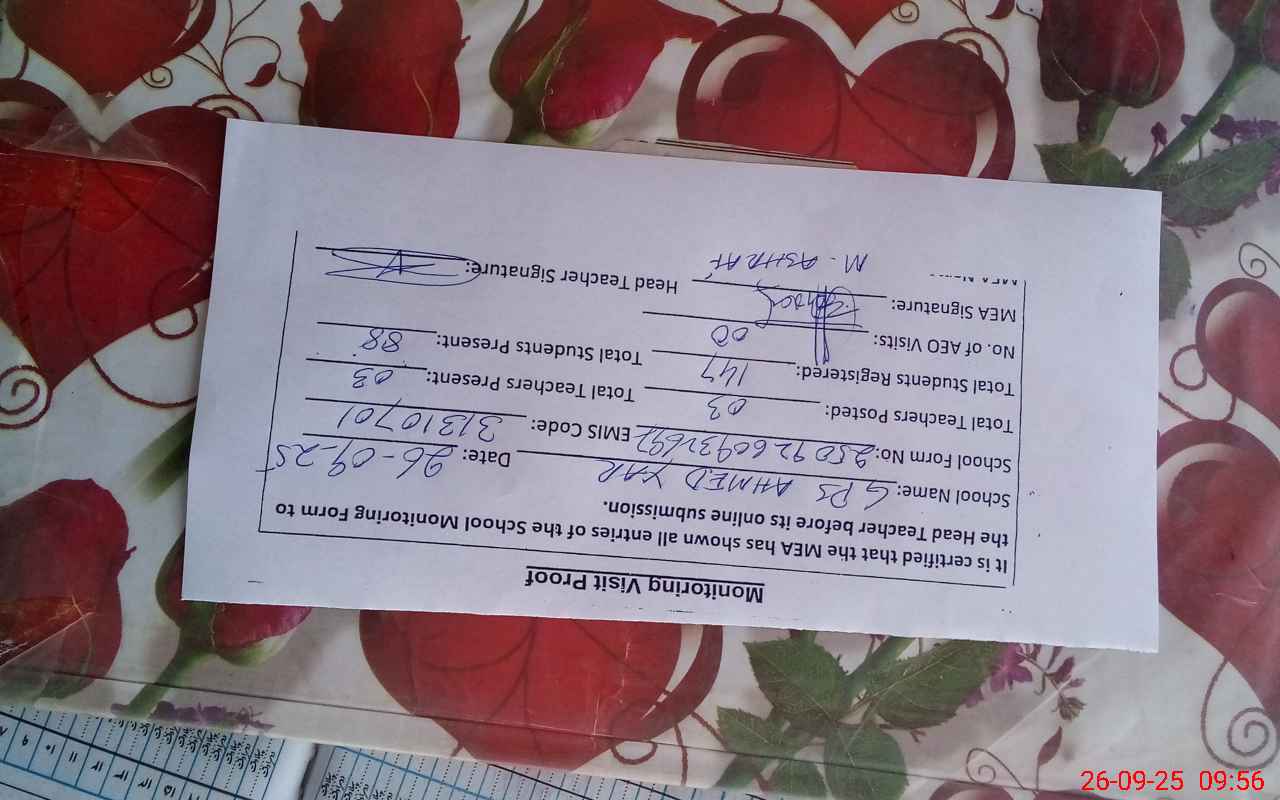 Monitoring Visit Proof
It is certified that the MEA has shown all entries of the School Monitoring Form to
the Head Teacher before its online submission.
School Name: GPS AHMED YAR Date: 26-09-25
School Form No: EMIS Code: 31310701
Total Teachers Posted: 03 Total Teachers Present: 03
Total Students Registered: 147 Total Students Present: 88
No. of AEO Visits: 00
MEA Signature: Head Teacher Signature:
M. ASHRAF
26-09-25 09:56